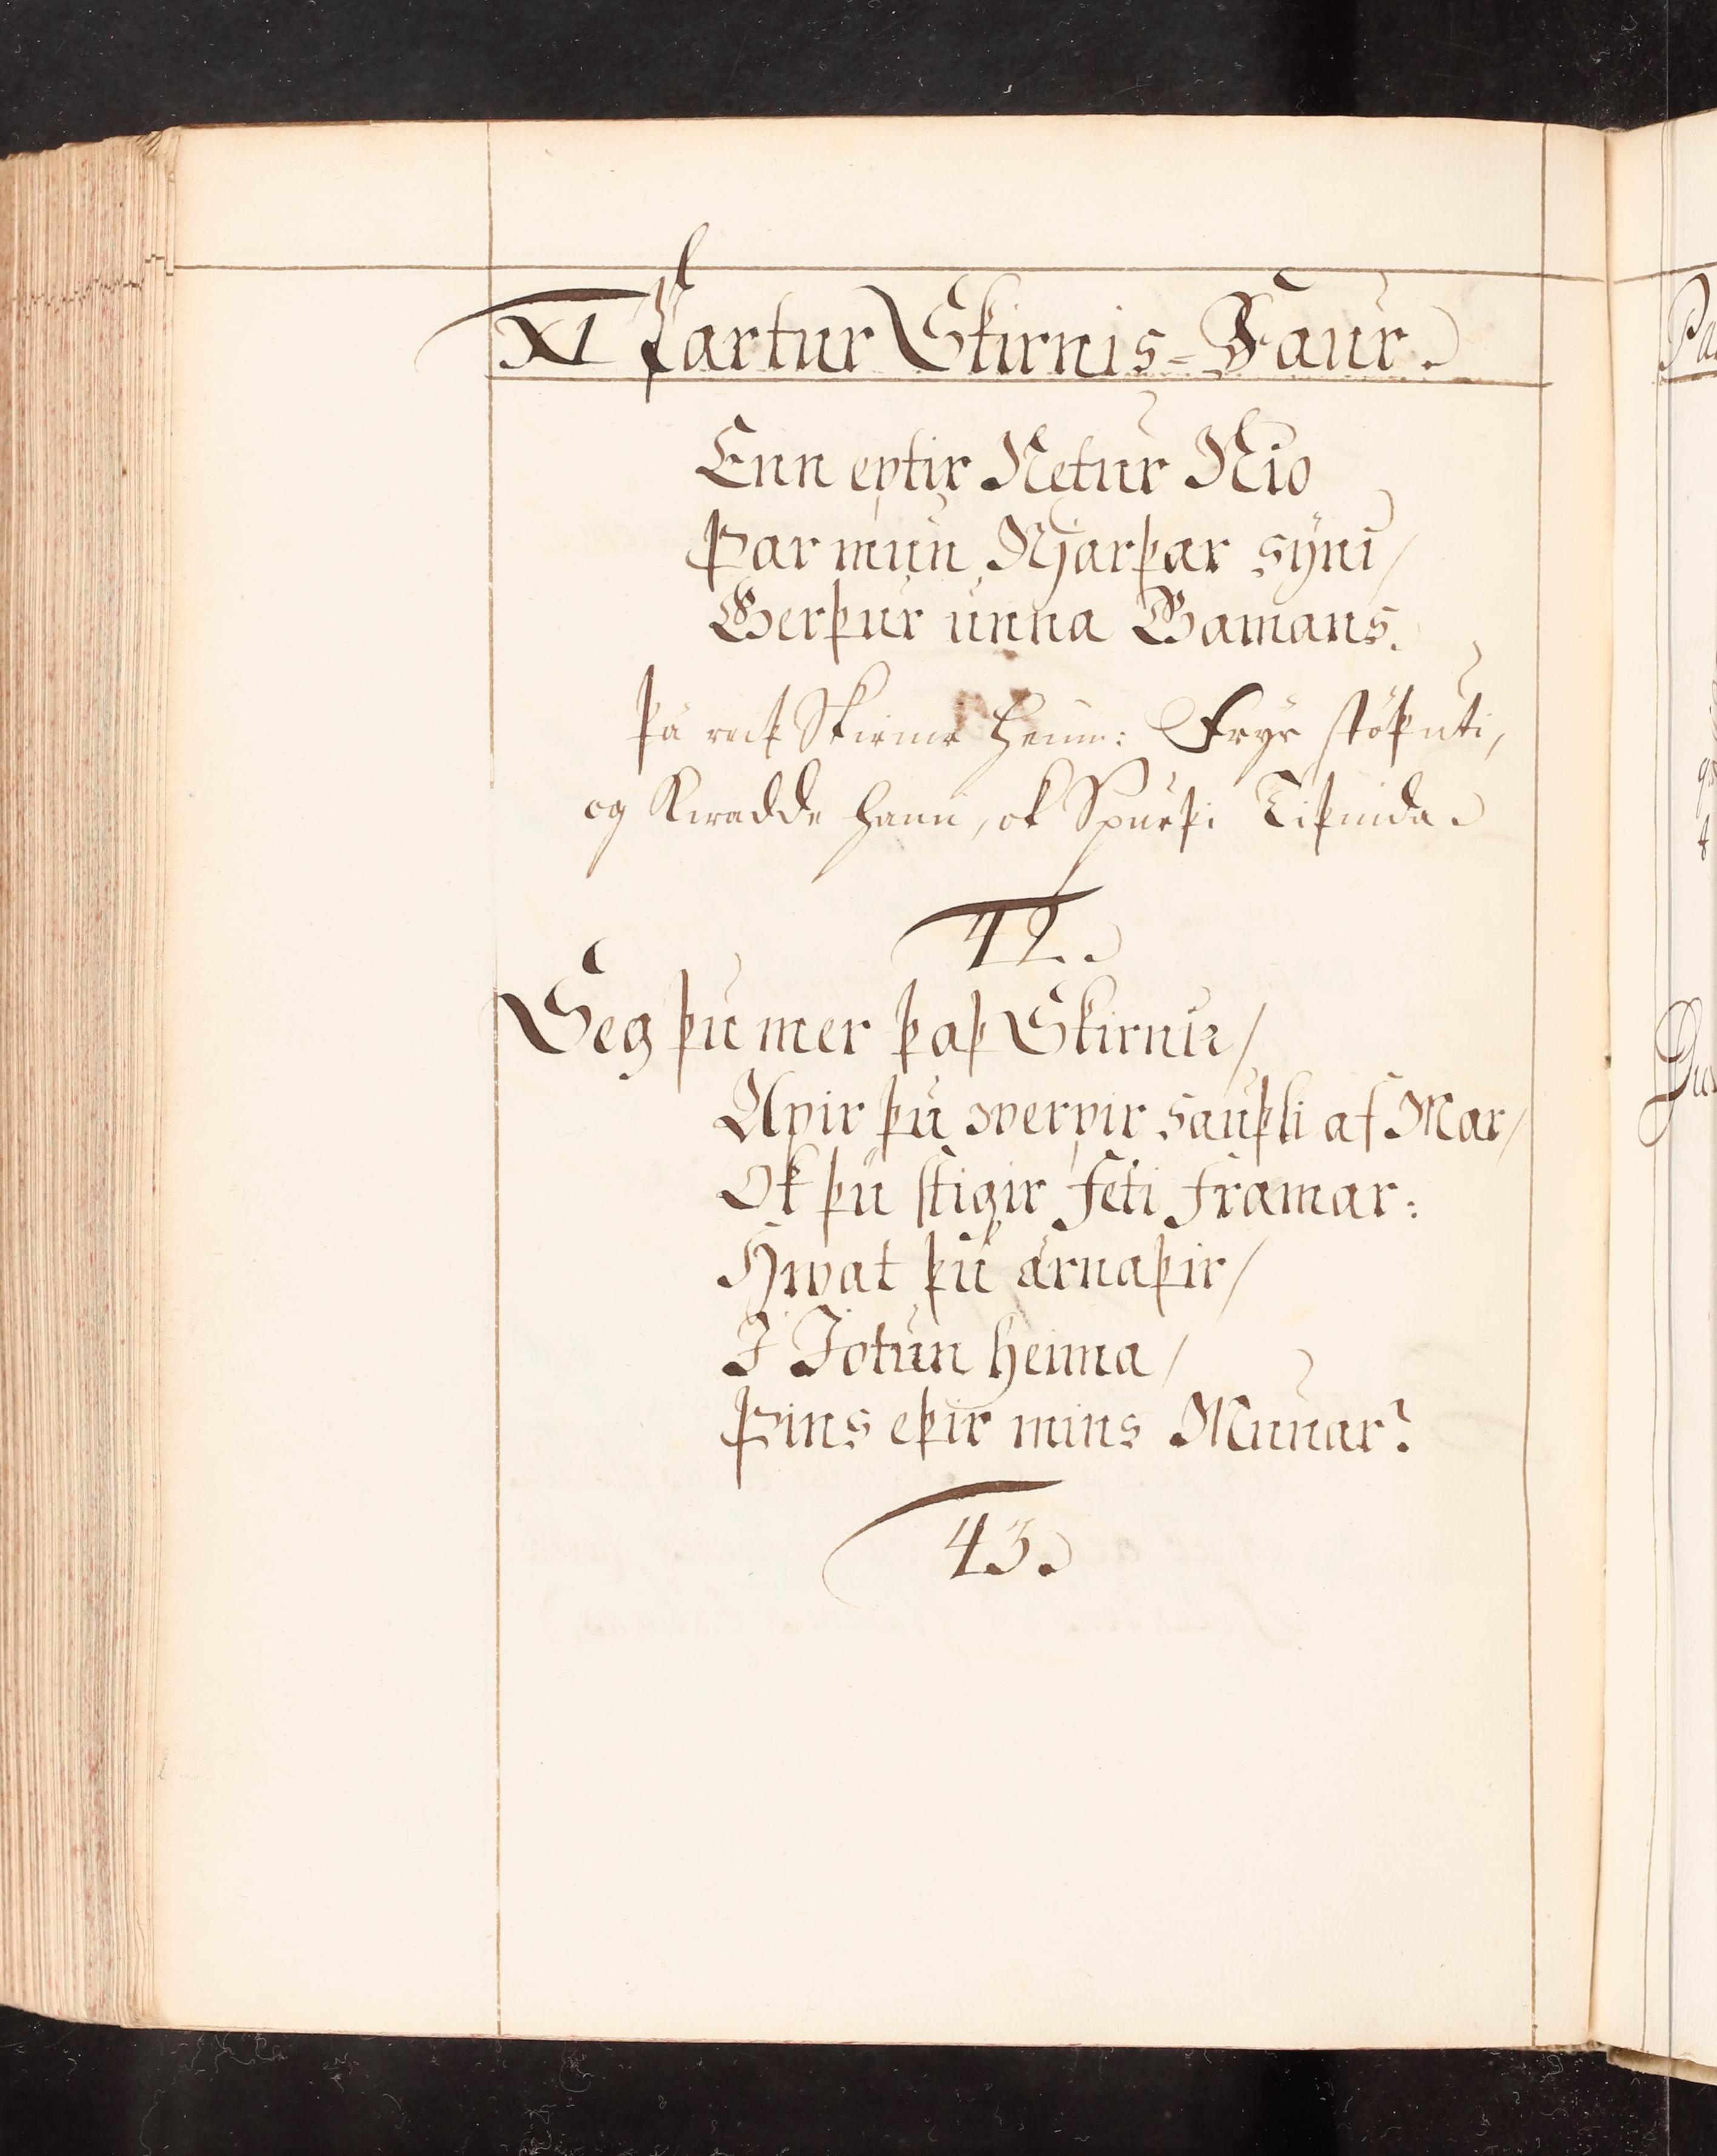 XI Partur Skirnis-Faur.
Enn eptir Netur Nio
Þar mun Njarþar syni/
Gerþur unna Gamans.
Þá reiþ Skirnir heim: Freyr stóþ uti,
og Kwadde hann, ok Spurþi Tiþinda
42.
Seg þu mer þaþ Skirnir/
Apir þu verpir sauþli af Mar/
Ok þu stigir feti framar:
Hwat þu arnaþir/
I Jotun heima/
Þins eþir mins Munar?
43.